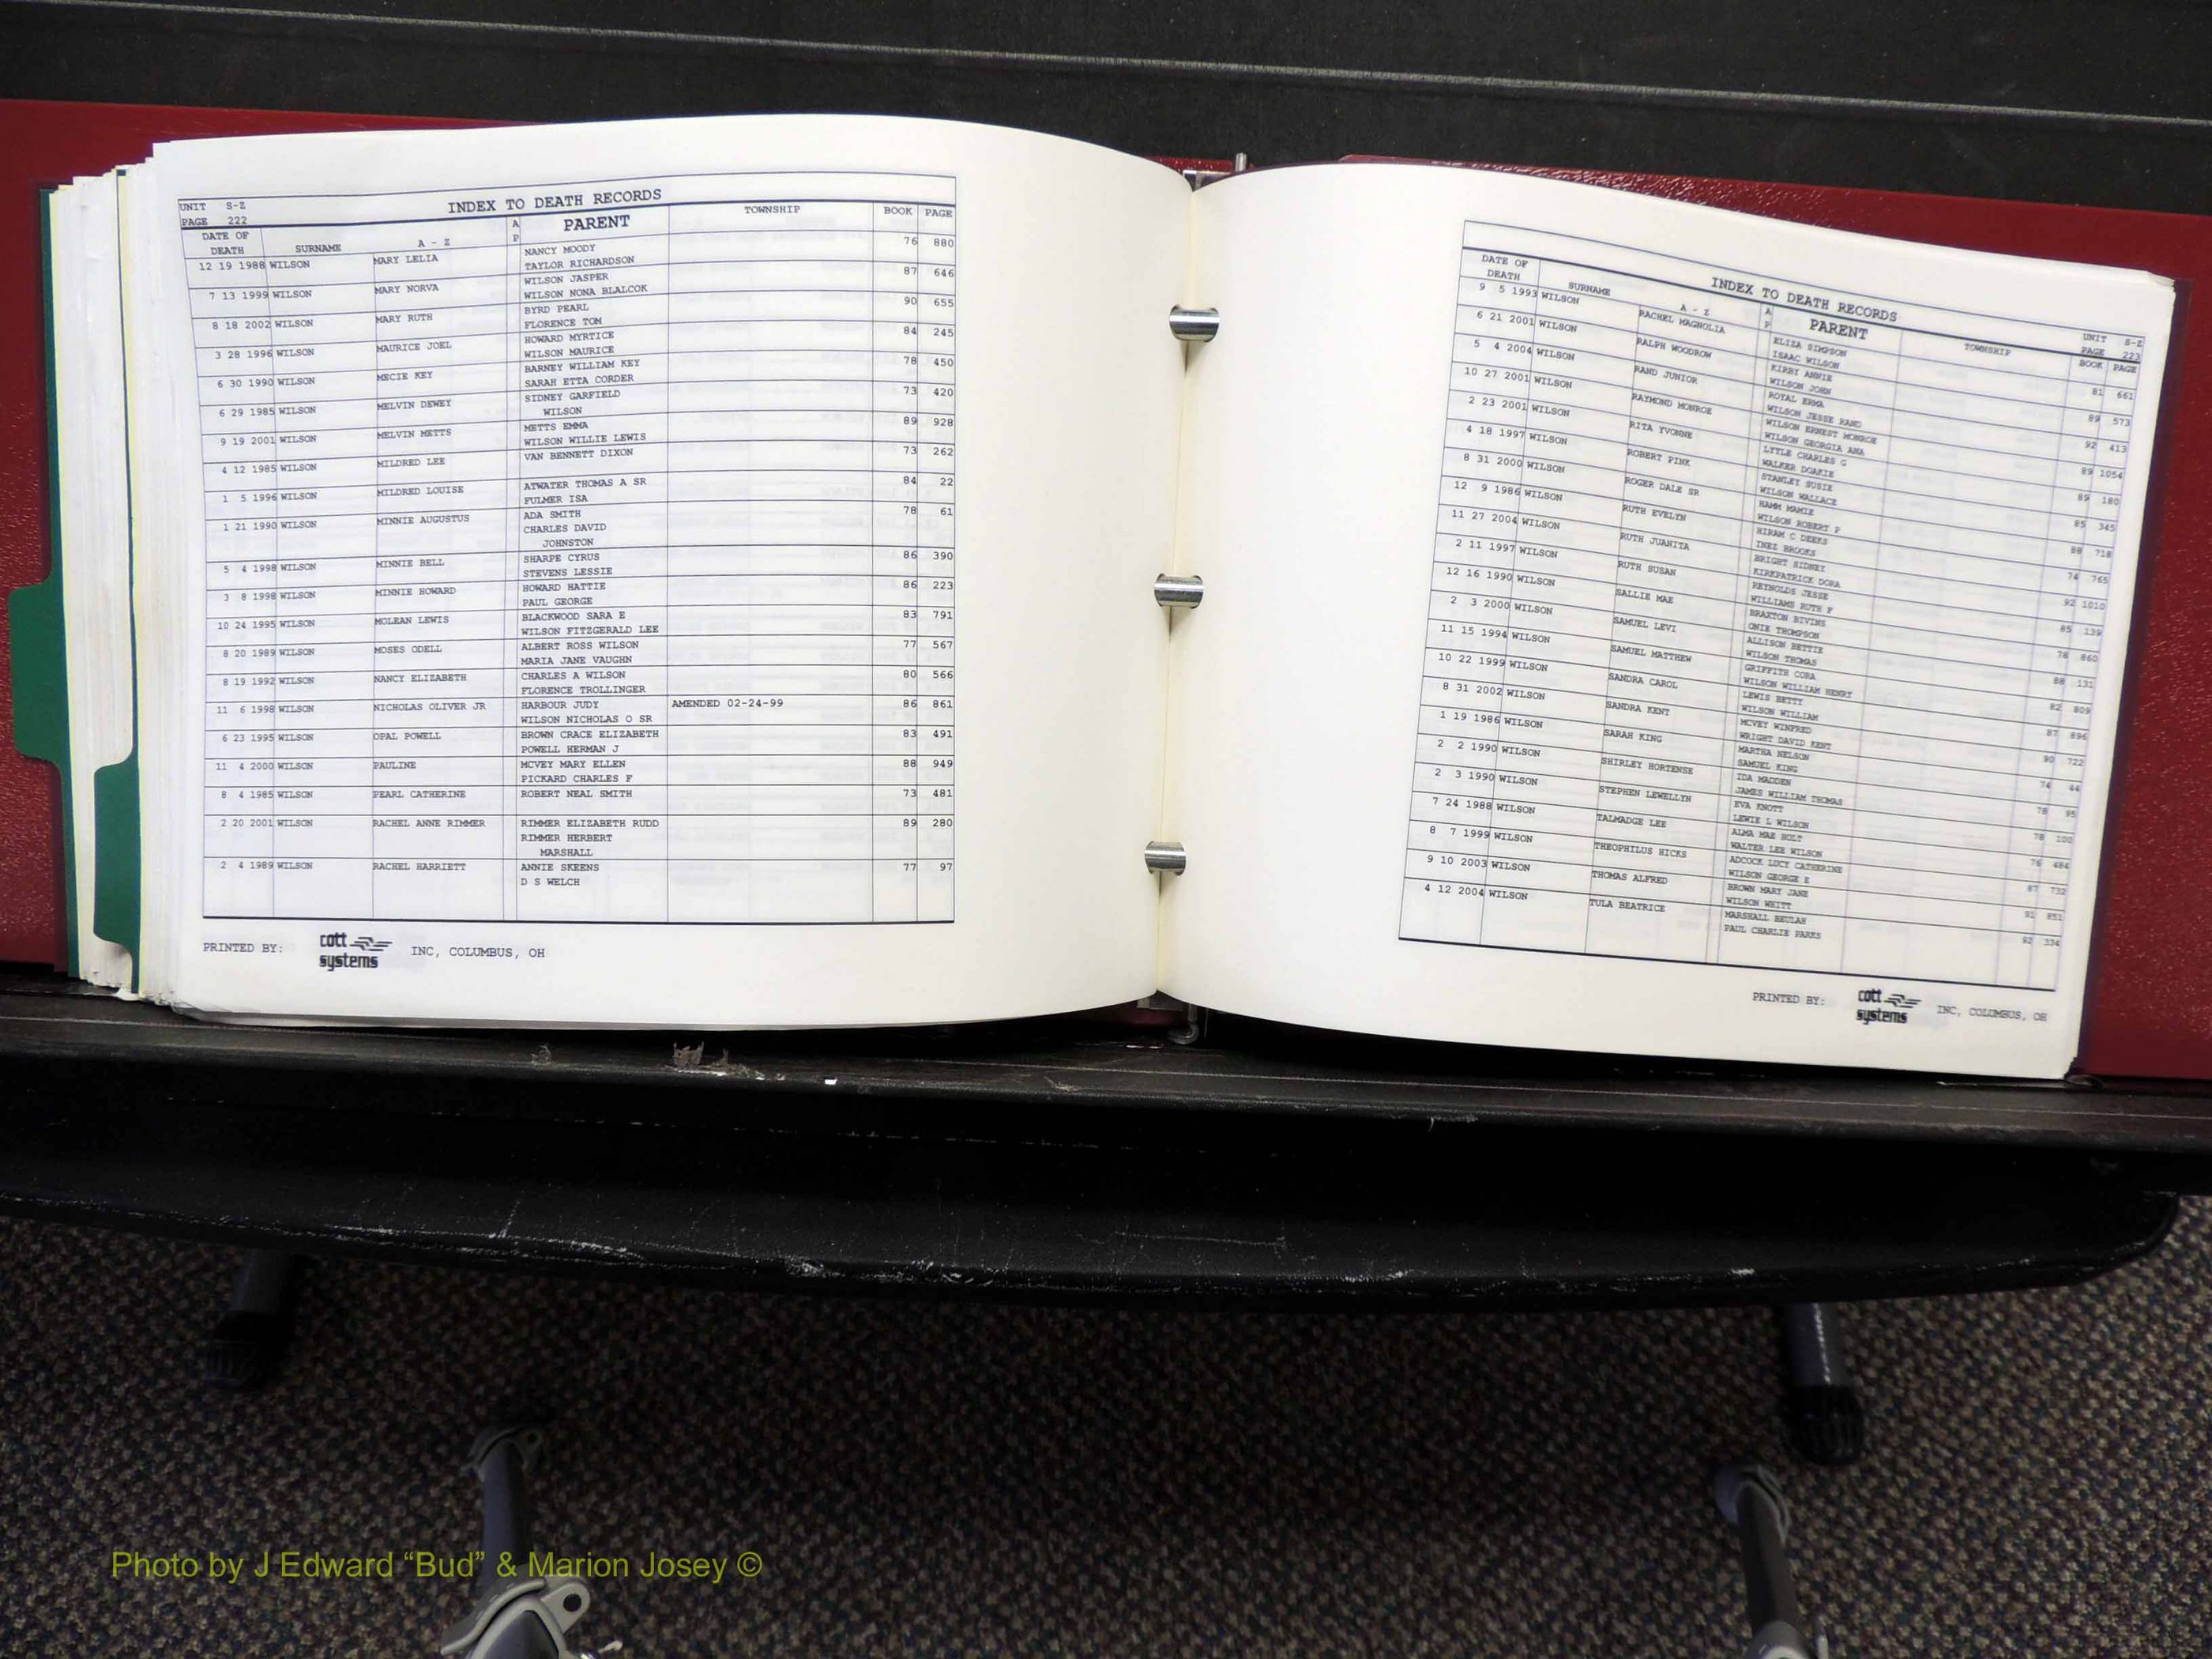 UNIT S-Z
PAGE 222
INDEX TO DEATH RECORDS
DATE OF DEATH SURNAME A - Z A P PARENT TOWNSHIP BOOK PAGE
12 19 1988 WILSON MARY LELIA NANCY MOODY 76 880
TAYLOR RICHARDSON
7 13 1999 WILSON MARY NORVA WILSON JASPER 87 646
WILSON NONA BLALCOK
8 18 2002 WILSON MARY RUTH BYRD PEARL 90 655
FLORENCE TOM
3 28 1996 WILSON MAURICE JOEL HOWARD MYRTICE 84 245
WILSON MAURICE
6 30 1990 WILSON MECIE KEY BARNEY WILLIAM KEY 78 450
SARAH ETTA CORDER
6 29 1985 WILSON MELVIN DEWEY SIDNEY GARFIELD 73 420
WILSON
9 19 2001 WILSON MELVIN METTS METTS EMMA 89 928
WILSON WILLIE LEWIS
4 12 1985 WILSON MILDRED LEE VAN BENNETT DIXON 73 262
1 5 1996 WILSON MILDRED LOUISE ATWATER THOMAS A SR 84 22
FULMER ISA
1 21 1990 WILSON MINNIE AUGUSTUS ADA SMITH 78 61
CHARLES DAVID
JOHNSTON
5 4 1998 WILSON MINNIE BELL SHARPE CYRUS 86 390
STEVENS LESSIE
3 8 1998 WILSON MINNIE HOWARD HOWARD HATTIE 86 223
PAUL GEORGE
10 24 1995 WILSON MOLEAN LEWIS BLACKWOOD SARA E 83 791
WILSON FITZGERALD LEE
8 20 1989 WILSON MOSES ODELL ALBERT ROSS WILSON 77 567
MARIA JANE VAUGHN
8 19 1992 WILSON NANCY ELIZABETH CHARLES A WILSON 80 566
FLORENCE TROLLINGER
11 6 1998 WILSON NICHOLAS OLIVER JR HARBOUR JUDY AMENDED 02-24-99 86 861
WILSON NICHOLAS O SR
6 23 1995 WILSON OPAL POWELL BROWN CRACE ELIZABETH 83 491
POWELL HERMAN J
11 4 2000 WILSON PAULINE MCVEY MARY ELLEN 88 949
PICKARD CHARLES F
8 4 1985 WILSON PEARL CATHERINE ROBERT NEAL SMITH 73 481
2 20 2001 WILSON RACHEL ANNE RIMMER RIMMER ELIZABETH RUDD 89 280
RIMMER HERBERT
MARSHALL
2 4 1989 WILSON RACHEL HARRIETT ANNIE SKEENS 77 97
D S WELCH
PRINTED BY: cott systems INC, COLUMBUS, OH
INDEX TO DEATH RECORDS
UNIT S-Z
PAGE 223
DATE OF DEATH SURNAME A - Z A P PARENT TOWNSHIP BOOK PAGE
9 5 1993 WILSON RACHEL MAGNOLIA ELIZA SIMPSON 81 661
ISAAC WILSON
6 21 2001 WILSON RALPH WOODROW KIRBY ANNIE 89 573
WILSON JOHN
5 4 2004 WILSON RAND JUNIOR ROYAL ERMA 92 413
WILSON JESSE RAND
10 27 2001 WILSON RAYMOND MONROE WILSON ERNEST MONROE 89 1054
WILSON GEORGIA ANA
2 23 2001 WILSON RITA YVONNE LYTLE CHARLES G 89 180
WALKER DOAKIE
4 18 1997 WILSON ROBERT PINK STANLEY SUSIE 85 345
WILSON WALLACE
8 31 2000 WILSON ROGER DALE SR HAMM MAMIE 88 718
WILSON ROBERT P
12 9 1986 WILSON RUTH EVELYN HIRAM C DEEKS 74 765
INEZ BROOKS
11 27 2004 WILSON RUTH JUANITA BRIGHT SIDNEY 92 1010
KIRKPATRICK DORA
2 11 1997 WILSON RUTH SUSAN REYNOLDS JESSE 85 139
WILLIAMS RUTH F
12 16 1990 WILSON SALLIE MAE BRAXTON BIVINS 78 860
ONIE THOMPSON
2 3 2000 WILSON SAMUEL LEVI ALLISON BETTIE 88 131
WILSON THOMAS
11 15 1994 WILSON SAMUEL MATTHEW GRIFFITH CORA 82 809
WILSON WILLIAM HENRY
10 22 1999 WILSON SANDRA CAROL LEWIS BETTY 87 896
WILSON WILLIAM
8 31 2002 WILSON SANDRA KENT MCVEY WINFRED 90 722
WRIGHT DAVID KENT
1 19 1986 WILSON SARAH KING MARTHA NELSON 74 44
SAMUEL KING
2 2 1990 WILSON SHIRLEY HORTENSE IDA MADDEN 78 95
JAMES WILLIAM THOMAS
2 3 1990 WILSON STEPHEN LEWELLYN EVA KNOTT 78 100
LEWIE L WILSON
7 24 1988 WILSON TALMADGE LEE ALMA MAE HOLT 76 484
WALTER LEE WILSON
8 7 1999 WILSON THEOPHILUS HICKS ADCOCK LUCY CATHERINE 87 732
WILSON GEORGE E
9 10 2003 WILSON THOMAS ALFRED BROWN MARY JANE 91 851
WILSON WHITT
4 12 2004 WILSON TULA BEATRICE MARSHALL BEULAH 92 334
PAUL CHARLIE PARKS
PRINTED BY: cott systems INC, COLUMBUS, OH
Photo by J Edward “Bud” & Marion Josey ©